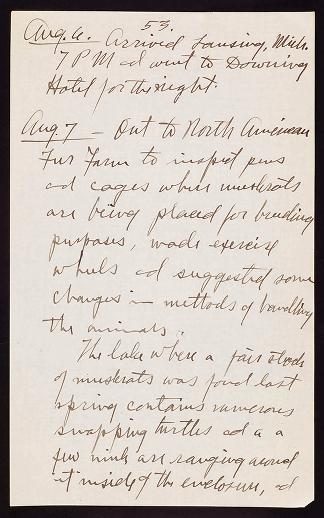 53.
Aug. 6. Arrived Lansing, Mich.
7 PM ad went to Downing
Hotel for the night.
Aug. 7 – Out to North American
Fur Farm to inspect pens
ad cages where muskrats
are being placed for breeding
purposes, made exercise
wheels ad suggested some
changes in methods of handling
the animals.
The lake where a fair stock
of muskrats was found last
spring contains numerous
snapping turtles ad a
few mink are ranging around
it inside of the enclosure, ad